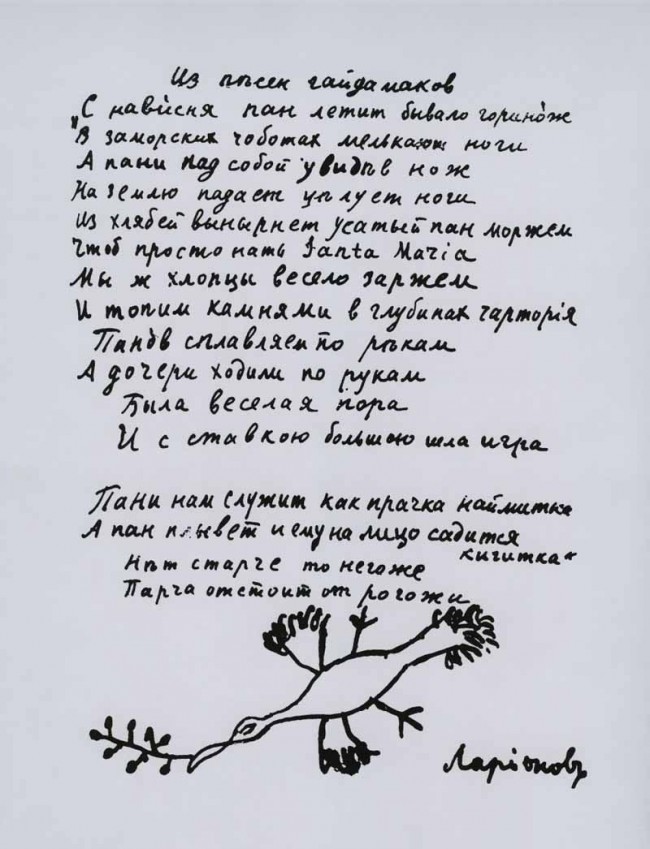 Из пѣсен гайдамаков
„С нависня пан летит бывало горинож
В заморских чоботах мелькают ноги
А пани пад собой увидѣв нож
На землю падает цѣлует ноги
Из хлябей вынырнет усатый пан моржем
Чтоб простонать Santa Maria
Мы ж хлопцы весело заржем
И топим камнями в глубинах чарторія
Панов сплавляем по рѣкам
А дочери ходили по рукам
Была веселая пора
И с ставкою большою шла игра
Пани нам служит как прачка наймитка
А пан плывет и ему на лицо садится
кигитка“
Нѣт старче то негоже
Парча отстоит от рогожи
Ларіоновъ